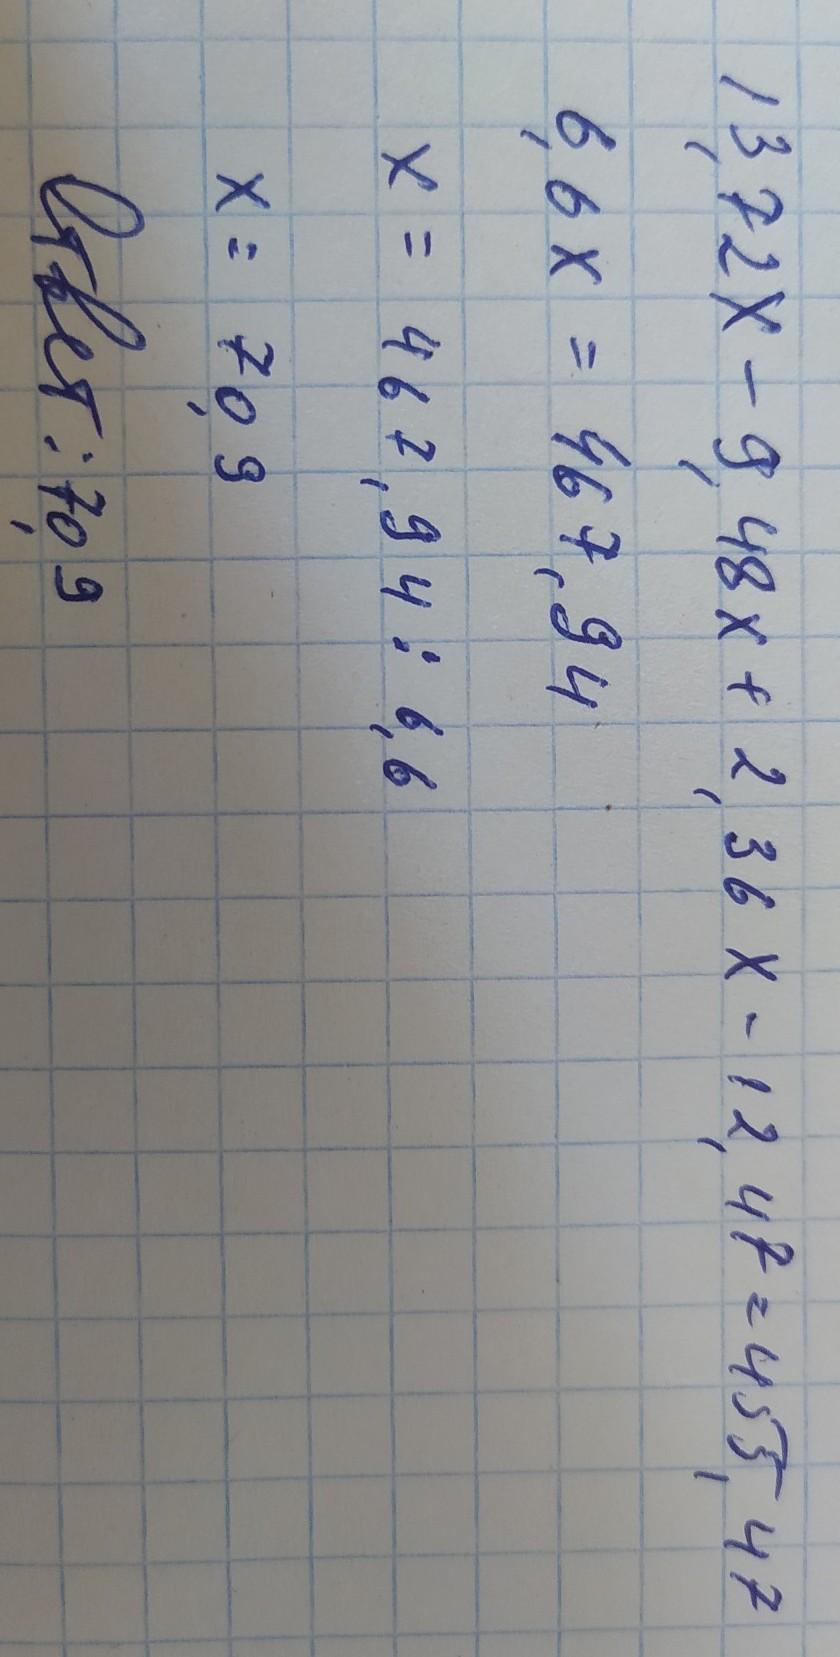 13,72x - 9,48x + 2,36x - 12,47 = 455,47
6,6x = 467,94
x = 467,94 : 6,6
x = 70,9
Ответ: 70,9